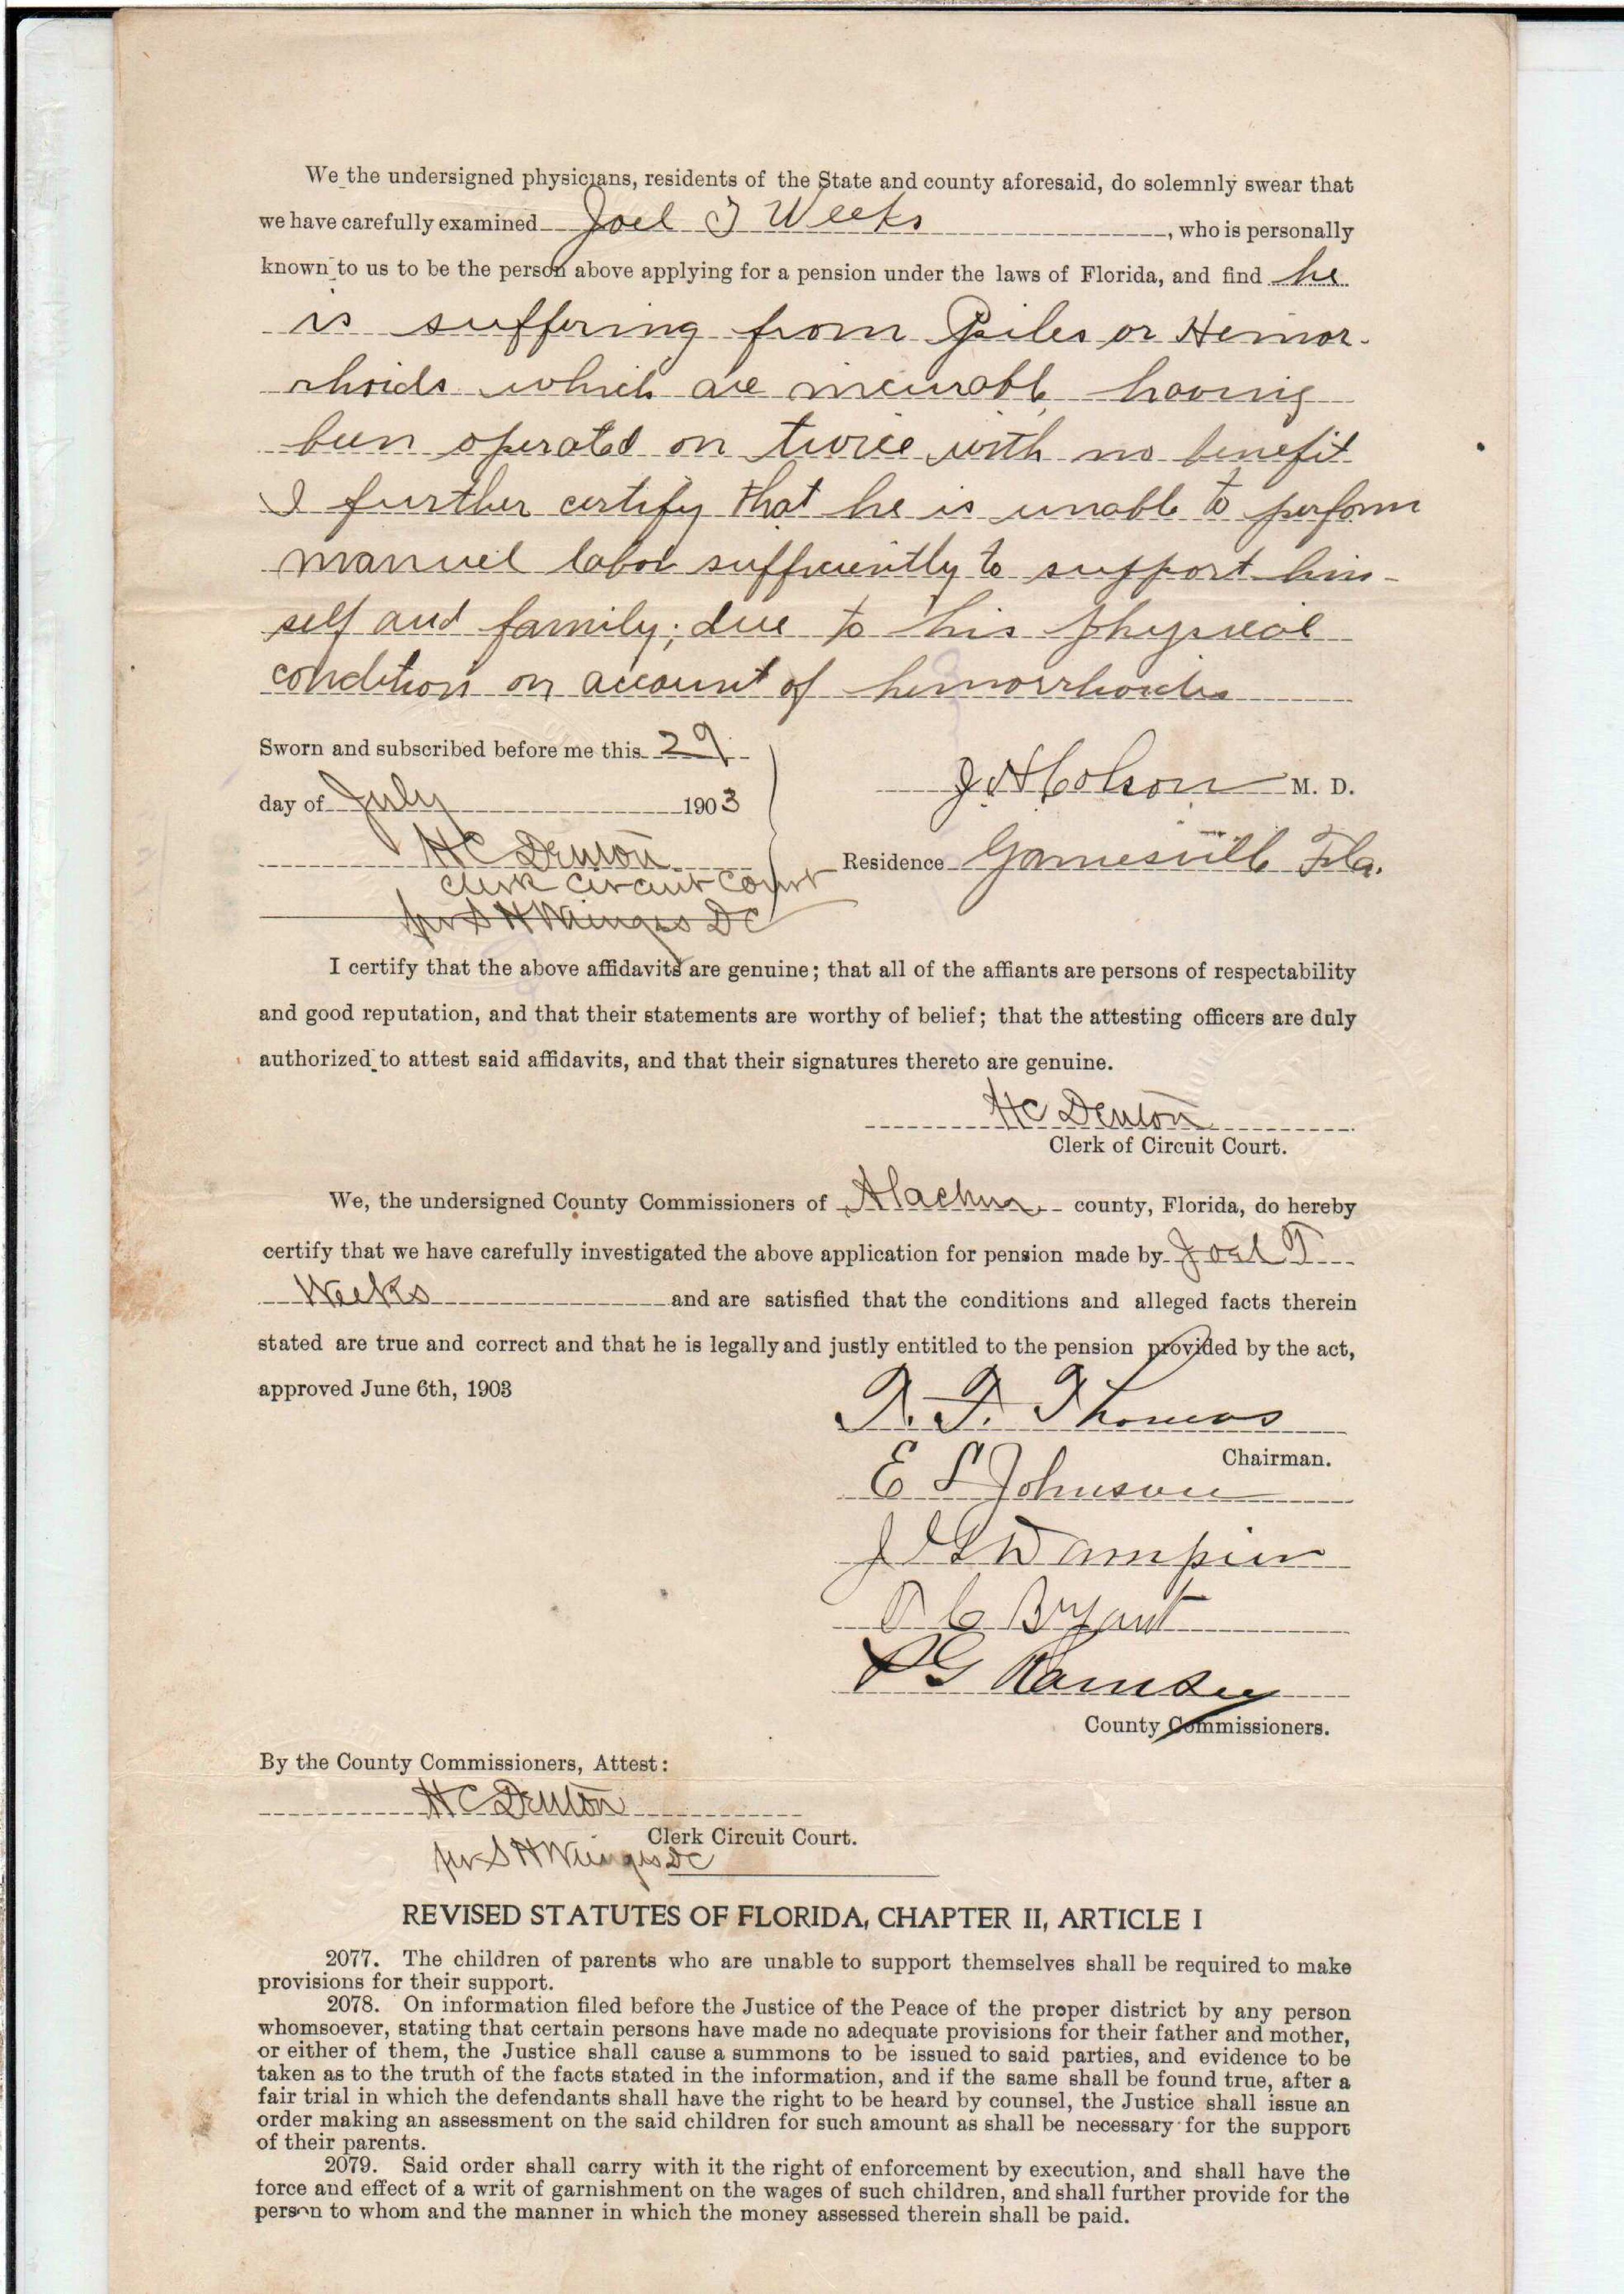 We the undersigned physicians, residents of the State and county aforesaid, do solemnly swear that
we have carefully examined Joel T Weeks, who is personally
known to us to be the person above applying for a pension under the laws of Florida, and find he
is suffering from Piles or Hemor-
rhoids which are incurable having
been operated on twice with no benefit
I further certify that he is unable to perform
manuel labor sufficiently to support him-
self and family; due to his physical
condition on account of hemorrhoids
Sworn and subscribed before me this 29
day of July 1903
J. H Colson M. D.
HC Denton
Residence Gainesville Fla.
Clerk Circuit Court
per S H Wienges DC
I certify that the above affidavits are genuine; that all of the affiants are persons of respectability
and good reputation, and that their statements are worthy of belief; that the attesting officers are duly
authorized to attest said affidavits, and that their signatures thereto are genuine.
HC Denton
Clerk of Circuit Court.
We, the undersigned County Commissioners of Alachua county, Florida, do hereby
certify that we have carefully investigated the above application for pension made by Joel T
Weeks and are satisfied that the conditions and alleged facts therein
stated are true and correct and that he is legally and justly entitled to the pension provided by the act,
approved June 6th, 1903
Thomas
Chairman.
E S Johnson
Dampier
Bryant
P G Ramsey
County Commissioners.
By the County Commissioners, Attest:
HC Denton
Clerk Circuit Court.
per S H Wienges DC
REVISED STATUTES OF FLORIDA, CHAPTER II, ARTICLE I
2077. The children of parents who are unable to support themselves shall be required to make
provisions for their support.
2078. On information filed before the Justice of the Peace of the proper district by any person
whomsoever, stating that certain persons have made no adequate provisions for their father and mother,
or either of them, the Justice shall cause a summons to be issued to said parties, and evidence to be
taken as to the truth of the facts stated in the information, and if the same shall be found true, after a
fair trial in which the defendants shall have the right to be heard by counsel, the Justice shall issue an
order making an assessment on the said children for such amount as shall be necessary for the support
of their parents.
2079. Said order shall carry with it the right of enforcement by execution, and shall have the
force and effect of a writ of garnishment on the wages of such children, and shall further provide for the
person to whom and the manner in which the money assessed therein shall be paid.